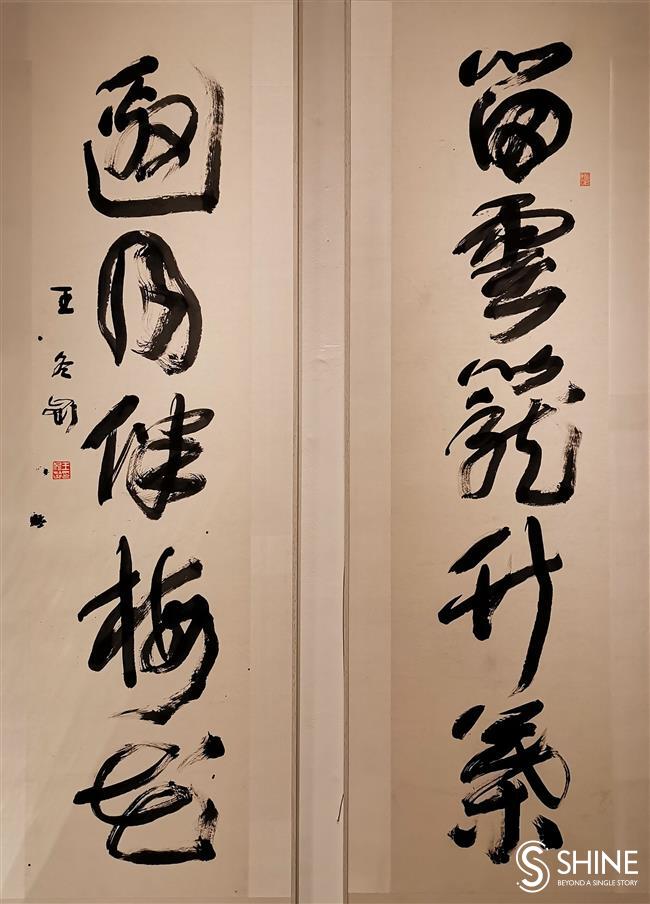 留雲籠竹葉
邀月伴梅花
王冬齡
SHINE
BEYOND A SINGLE STORY